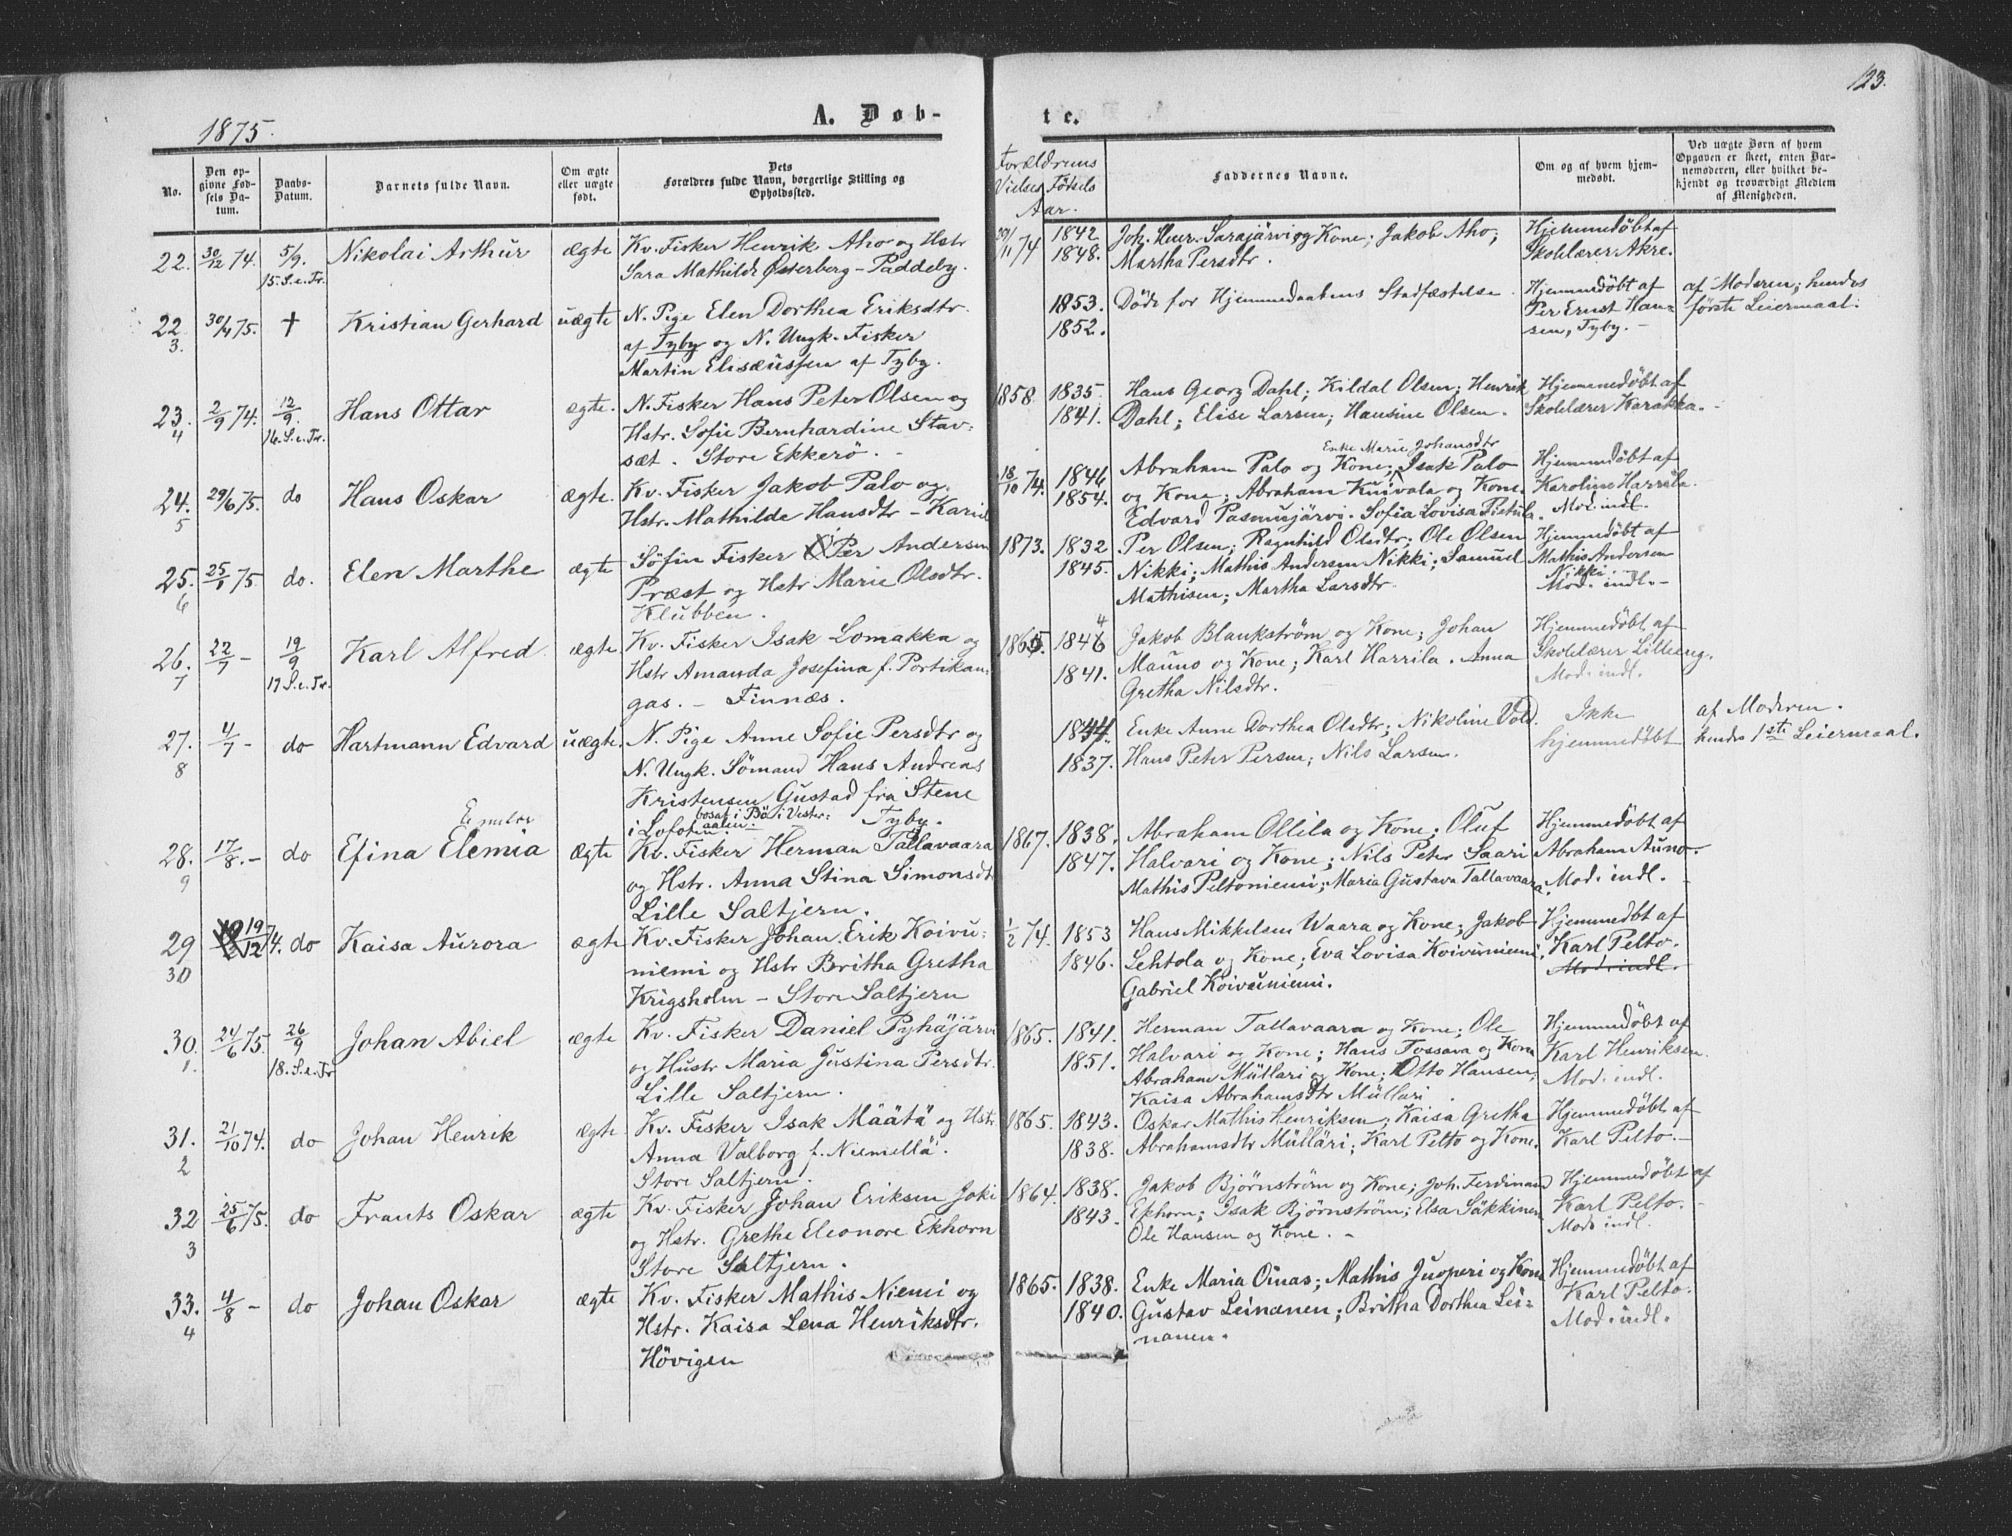 123.
1875.
A. Døb-
te.
No.
Den opgivne Fødsels Datum.
Daabs-Datum.
Barnets fulde Navn.
Om ægte eller uægte født.
Dets Forældres fulde Navn, borgerlige Stilling og Opholdssted.
Forældrenes Vielses Fødsels Aar.
Faddernes Navne.
Om og af hvem hjemmedøbt.
Ved uægte Børn af hvem Opgaven er skeet, enten Barnemoderen, eller hvilket bekjendt og troværdigt Medlem af Menigheden.
22. 30/12 74. 5/9. 15. S. e. Tr. Nikolai Arthur ægte
Kv. Fisker Henrik Aho og Hstr
Sara Mathilde Østerberg - Paddeby.
29/11 74 1842 1848.
Joh. Henr. Sarajärvi og Kone; Jakob Aho;
Martha Persdtr.
Hjemmedøbt af
Skolelærer Akre.
22 3. 30/4 75. † Kristian Gerhard uægte
N. Pige Elen Dorthea Eriksdtr
af Tyby og N. Ungk. Fisker
Martin Elisæussen af Tyby.
1853. 1852.
Døde før Hjemmedaabens Stadfæstelse
Hjemmedøbt af
Per Ernst Han-
sen, Tyby. -
af Moderen; hendes
første Leiermaal.
23. 4 2/9 74. 12/9. 16. S. e. Tr. Hans Ottar ægte.
N. Fisker Hans Peter Olsen og
Hstr. Sofie Bernhardine Stav-
sæt. Store Ekkerö. -
1858. 1835. 1841.
Hans Georg Dahl; Kildal Olsen; Henrik
Dahl; Elise Larsen; Hansine Olsen.
Hjemmedøbt af
Skolelærer Karakka.
24. 5 29/6 75. do Hans Oskar ægte.
Kv. Fisker Jakob Palo og
Hstr. Mathilde Hansdtr - Kariel
18/10 74. 1846 1854.
Enke Marie Johansdtr
Abraham Palo og Kone; Isak Palo
og Kone; Abraham Knivala og Kone.
Edvard Pasmusjärvi. Sofia Lovisa Pistula.
Hjemmedøbt af
Karoline Harrila.
Mod. indl.
25. 6 25/1 75. do. Elen Marthe ægte
Søfin Fisker Per Andersen
Præst og Hstr Marie Olsdtr.
Klubben.
1873. 1832 1845.
Per Olsen; Ragnhild Olsdtr; Ole Olsen
Nikki; Mathis Andersen Nikki; Samuel
Mathisen; Martha Larsdtr.
Hjemmedøbt af
Mathis Andersen
Nikki
Mod. indl. -
26. 7 22/7 - 19/9 17 S. e. Tr. Karl Alfred. ægte.
Kv. Fisker Isak Lomakka og
Hstr Amanda Josefina f. Portikan-
gas. - Finnæs.
1865. 1846 4 1841.
Jakob Blankström og Kone; Johan
Mauno og Kone; Karl Harrila. Anna
Gretha Nilsdtr.
Hjemmedøbt af
Skolelærer Lilleeng.
Mod. indl.
27. 8 4/7 - do Hartmann Edvard uægte.
N. Pige Anne Sofie Persdtr og
N. Ungk. Sömand Hans Andreas
Kristensen Gustad fra Stene
i Lofoten. bosat i Bö i Vester-
aalen. Tyby.
1844. 1837.
Enke Anne Dorthea Olsdtr; Nikoline Vold.
Hans Peter Persen; Nils Larsen.
Ikke
hjemmedøbt
af Moderen.
hendes 1ste Leiermaal.
28. 9 17/8. - do Efina Elemia ægte
Kv. Fisker Herman Tallavaara
og Hstr. Anna Stina Simonsdtr
Lille Saltjern.
1867. 1838. 1847.
Abraham Ollila og Kone; Oluf
Halvari og Kone; Nils Peter Saari
Mathis Peltoniemi; Maria Gustava Tallavaara.
Hjemmedøbt af
Abraham Auno.
Mod. indl. -
29 30 19/12 74. do Kaisa Aurora ægte
Kv. Fisker Johan Erik Koivu-
niemi og Hstr Britha Gretha
Krigsholm - Store Saltjern
1/2 74. 1853 1846.
Hans Mikkelsen Waara og Kone; Jakob
Lehtola og Kone; Eva Lovisa Koivuniemi.
Gabriel Koivuniemi.
Hjemmedbt af
Karl Pelto.
Mod. indl.
30. 1. 24/6 75. 26/9 18. S. e. Tr Johan Abiel ægte
Kv. Fisker Daniel Pyhäjärvi
og Hustr Maria Gustina Persdtr.
Lille Saltjern.
1865. 1841. 1851.
Herman Tallavaara og Kone; Ole
Halvari og Kone; Hans Tossava og Kone
Abraham Müllari og Kone; Otto Hansen;
Kaisa Abrahamsdtr Müllari.
Hjemmedøbt af
Karl Henriksen.
Mod. indl.
31. 2 21/10 74. do Johan Henrik ægte
Kv. Fisker Isak Määtä og Hstr.
Anna Valborg f. Niemellä.
Store Saltjern.
1865. 1843. 1838.
Oskar Mathis Henriksen; Kaisa Gretha
Abrahamsdtr Mülläri; Karl Pelto og Kone.
Hjemmedøbt af
Karl Pelto. -
32 3 25/6 75. do Frants Oskar ægte
Kv. Fisker Johan Eriksen Joki
og Hstr. Grethe Eleonore Ekhorn
Store Saltjern.
1864. 1838. 1843.
Jakob Björnström og Kone; Joh. Ferdinand
Ekhorn; Isak Björnström; Elsa Säkkinen
Ole Hansen og Kone. -
Hjemmedøbt af
Karl Pelto.
Mod. indl.
33. 4 4/8 - do Johan Oskar ægte
Kv. Fisker Mathis Niemi og
Hstr. Kaisa Lena Henriksdtr.
Hövigen
1865. 1838. 1840.
Enke Maria Oinas; Mathis Juoperi og Kone
Gustav Leinanen; Britha Dorthea Lei-
nanen.
Hjemmedøbt af
Karl Pelto.
Mod. indl.